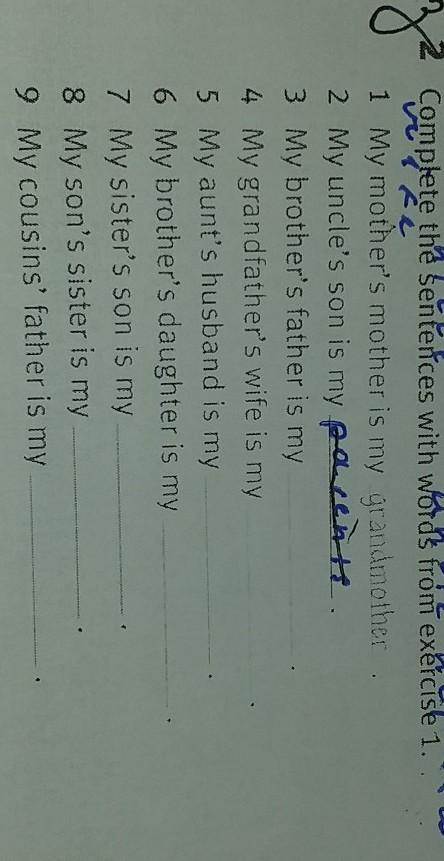 2 Complete the sentences with words from exercise 1.
1 My mother's mother is my grandmother.
2 My uncle's son is my parents.
3 My brother's father is my
4 My grandfather's wife is my
5 My aunt's husband is my
6 My brother's daughter is my
7 My sister's son is my
8 My son's sister is my
9 My cousins' father is my